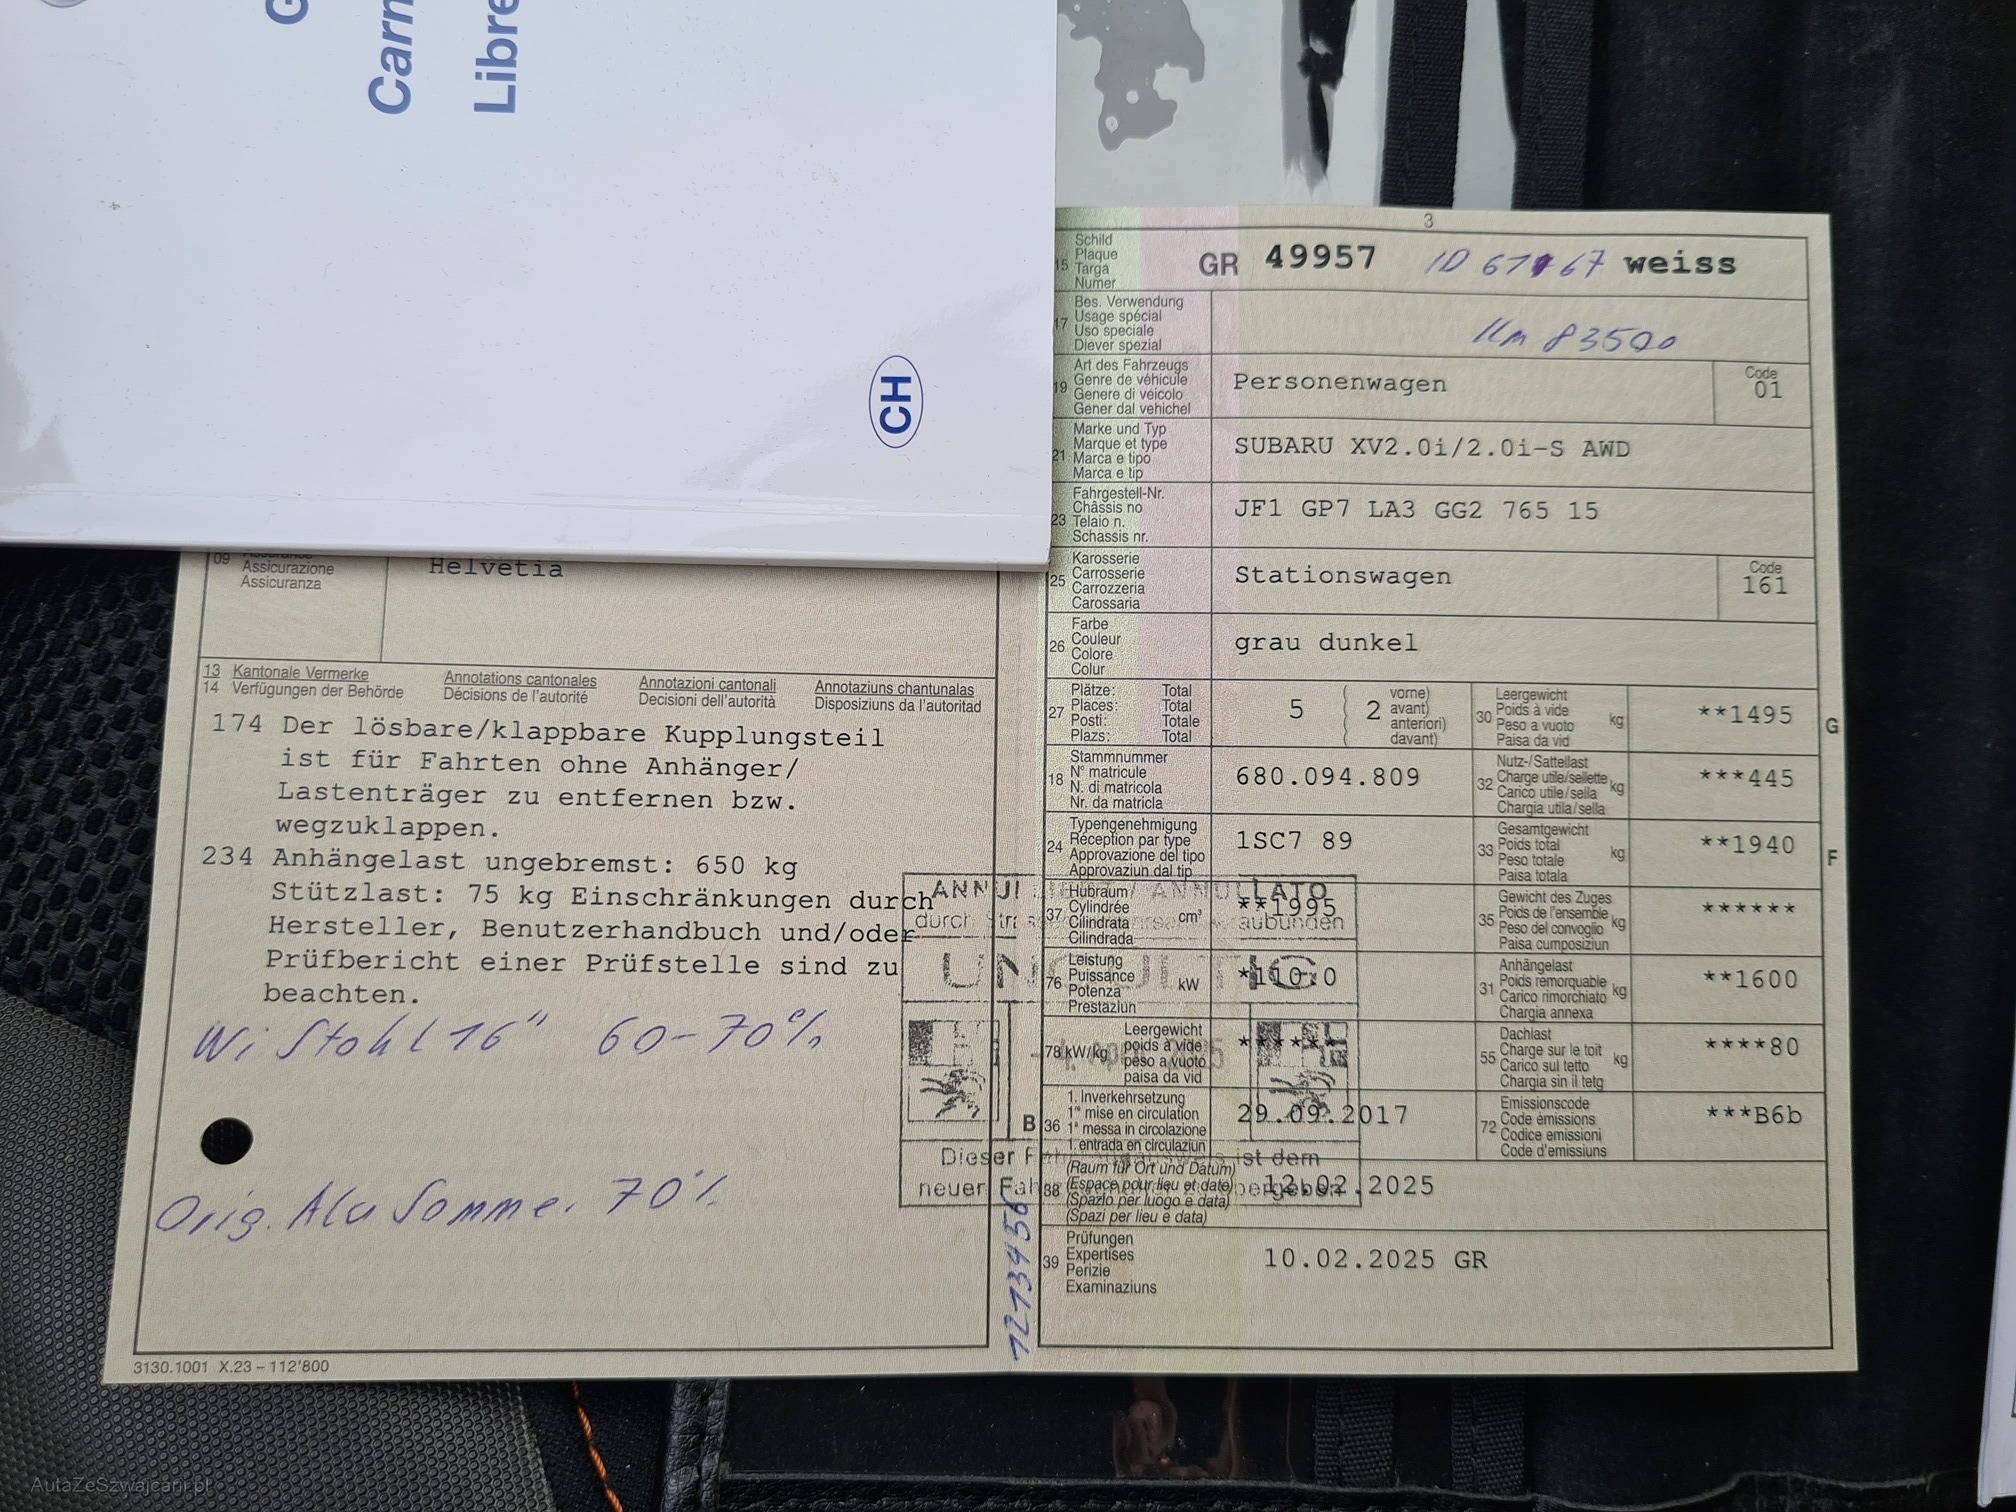 Carn
Libre
CH
09
Assicurazione
Assicuranza
Helvetia
13 Kantonale Vermerke Annotations cantonales Annotazioni cantonali Annotaziuns chantunalas
14 Verfügungen der Behörde Décisions de l'autorité Decisioni dell'autorità Disposiziuns da l'autoritad
174 Der lösbare/klappbare Kupplungsteil
ist für Fahrten ohne Anhänger/
Lastenträger zu entfernen bzw.
wegzuklappen.
234 Anhängelast ungebremst: 650 kg
Stützlast: 75 kg Einschränkungen durch
Hersteller, Benutzerhandbuch und/oder
Prüfbericht einer Prüfstelle sind zu
beachten.
Wi Stahl 16" 60-70%
Orig. Alu Sommer 70%
3130.1001 X.23 – 112'800
3
15 Schild
Plaque
Targa
Numer
GR 49957 weiss
17 Bes. Verwendung
Usage spécial
Uso speciale
Diever spezial
Km 83500
19 Art des Fahrzeugs
Genre de véhicule
Genere di veicolo
Gener dal vehichel
Personenwagen
Code
01
21 Marke und Typ
Marque et type
Marca e tipo
Marca e tip
SUBARU XV2.0i/2.0i-S AWD
23 Fahrgestell-Nr.
Châssis no
Telaio n.
Schassis nr.
JF1 GP7 LA3 GG2 765 15
25 Karosserie
Carrosserie
Carrozzeria
Carossaria
Stationswagen
Code
161
26 Farbe
Couleur
Colore
Colur
grau dunkel
27 Plätze: Total
Places: Total
Posti: Totale
Plazs: Total
5 2 vorne)
avant)
anteriori)
davant)
30 Leergewicht
Poids à vide
Peso a vuoto
Paisa da vid
kg **1495 G
18 Stammnummer
N° matricule
N. di matricola
Nr. da matricla
680.094.809
32 Nutz-/Sattellast
Charge utile/sellette
Carico utile/sella
Chargia utila/sella
kg ***445
24 Typengenehmigung
Réception par type
Approvazione del tipo
Approvaziun dal tip
1SC7 89
33 Gesamtgewicht
Poids total
Peso totale
Paisa totala
kg **1940 F
37 Hubraum
Cylindrée
Cilindrata
Cilindrada
cm³ **1995
35 Gewicht des Zuges
Poids de l'ensemble
Peso del convoglio
Paisa cumposiziun
kg ******
76 Leistung
Puissance
Potenza
Prestaziun
kW *110.0
31 Anhängelast
Poids remorquable
Carico rimorchiato
Chargia annexa
kg **1600
78 kW/kg Leergewicht
poids à vide
peso a vuoto
paisa da vid
******
55 Dachlast
Charge sur le toit
Carico sul tetto
Chargia sin il tetg
kg ****80
B 36 1. Inverkehrsetzung
1re mise en circulation
1a messa in circolazione
1. entrada en circulaziun
29.09.2017
72 Emissionscode
Code émissions
Codice emissioni
Code d'emissiuns
***B6b
38 (Raum für Ort und Datum)
(Espace pour lieu et date)
(Spazio per luogo e data)
(Spazi per lieu e data)
12.02.2025
39 Prüfungen
Expertises
Perizie
Examinaziuns
10.02.2025 GR
AutaZeSzwajcarii.pl